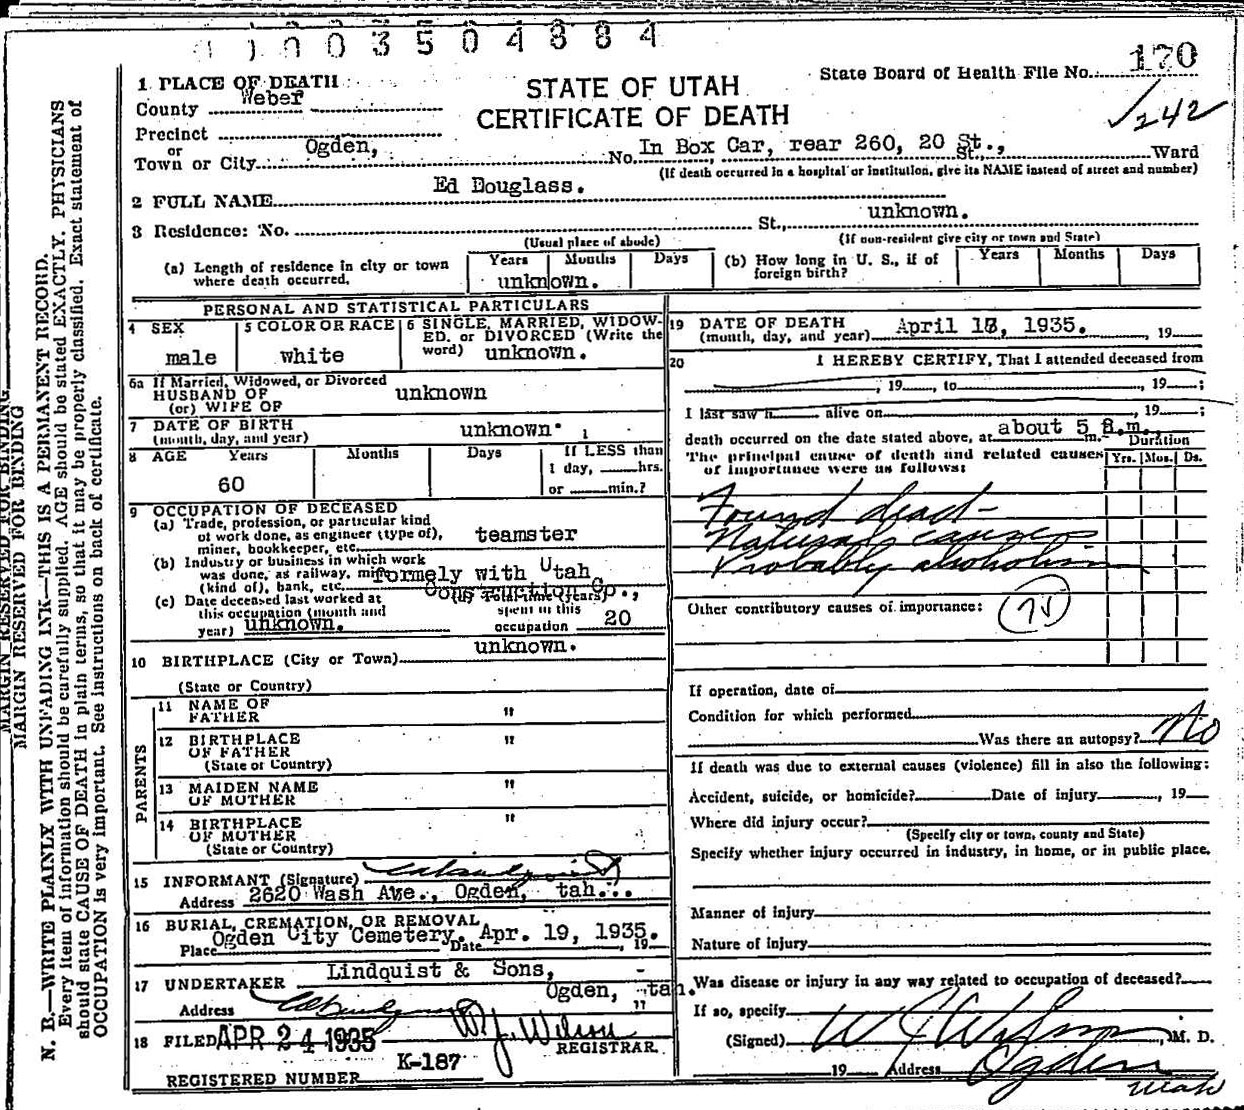 0 0 3 5 0 4 8 8 4
170
State Board of Health File No.
242
STATE OF UTAH
CERTIFICATE OF DEATH
1 PLACE OF DEATH
County Weber
Precinct
or
Town or City Ogden, No. In Box Car, rear 260, 20 St., St., Ward
(If death occurred in a hospital or institution, give its NAME instead of street and number)
2 FULL NAME Ed Douglass.
3 Residence: No. St., unknown.
(Usual place of abode) (If non-resident give city or town and State)
(a) Length of residence in city or town where death occurred. Years Months Days unknown.
(b) How long in U. S., if of foreign birth? Years Months Days
PERSONAL AND STATISTICAL PARTICULARS
4 SEX male
5 COLOR OR RACE white
6 SINGLE, MARRIED, WIDOWED, or DIVORCED (Write the word) unknown.
6a If Married, Widowed, or Divorced
HUSBAND OF
(or) WIFE OF unknown
7 DATE OF BIRTH
(month, day, and year) unknown
8 AGE Years Months Days If LESS than
1 day, hrs.
or min.?
60
9 OCCUPATION OF DECEASED
(a) Trade, profession, or particular kind
of work done, as engineer (type of),
miner, bookkeeper, etc. teamster
(b) Industry or business in which work
was done, as railway, formely with Utah
(kind of), bank, etc. Construction Co.,
(c) Date deceased last worked at
this occupation (month and
year) unknown.
(d) Total time (years)
spent in this
occupation 20
10 BIRTHPLACE (City or Town) unknown.
(State or Country)
PARENTS
11 NAME OF
FATHER "
12 BIRTHPLACE
OF FATHER "
(State or Country)
13 MAIDEN NAME
OF MOTHER "
14 BIRTHPLACE
OF MOTHER "
(State or Country)
15 INFORMANT (Signature)
Address 2620 Wash Ave., Ogden, tah.
16 BURIAL, CREMATION, OR REMOVAL
Place Ogden City Cemetery. Date Apr. 19, 1935. , 19
17 UNDERTAKER Lindquist & Sons,
Ogden, tah.
Address "
18 FILED APR 24 1935 W J. Wilson
REGISTRAR.
REGISTERED NUMBER K-187
19 DATE OF DEATH
(month, day, and year) April 18, 1935. , 19
20 I HEREBY CERTIFY, That I attended deceased from
, 19 , to , 19 ;
I last saw h alive on , 19 ;
death occurred on the date stated above, at about 5 a.m., m.
The principal cause of death and related causes
of importance were as follows:
Duration
Yrs. Mos. Ds.
Found dead-
Natural causes
Probably alcoholism
Other contributory causes of importance:
75
If operation, date of
Condition for which performed
Was there an autopsy? No
If death was due to external causes (violence) fill in also the following:
Accident, suicide, or homicide? Date of injury , 19
Where did injury occur?
(Specify city or town, county and State)
Specify whether injury occurred in industry, in home, or in public place.
Manner of injury
Nature of injury
Was disease or injury in any way related to occupation of deceased?
If so, specify
(Signed) W J Wilson , M. D.
19 Address Ogden
Utah
MARGIN RESERVED FOR BINDING
MARGIN RESERVED FOR BINDING
N. B.—WRITE PLAINLY WITH UNFADING INK—THIS IS A PERMANENT RECORD.
Every item of information should be carefully supplied. AGE should be stated EXACTLY. PHYSICIANS
should state CAUSE OF DEATH in plain terms, so that it may be properly classified. Exact statement of
OCCUPATION is very important. See instructions on back of certificate.